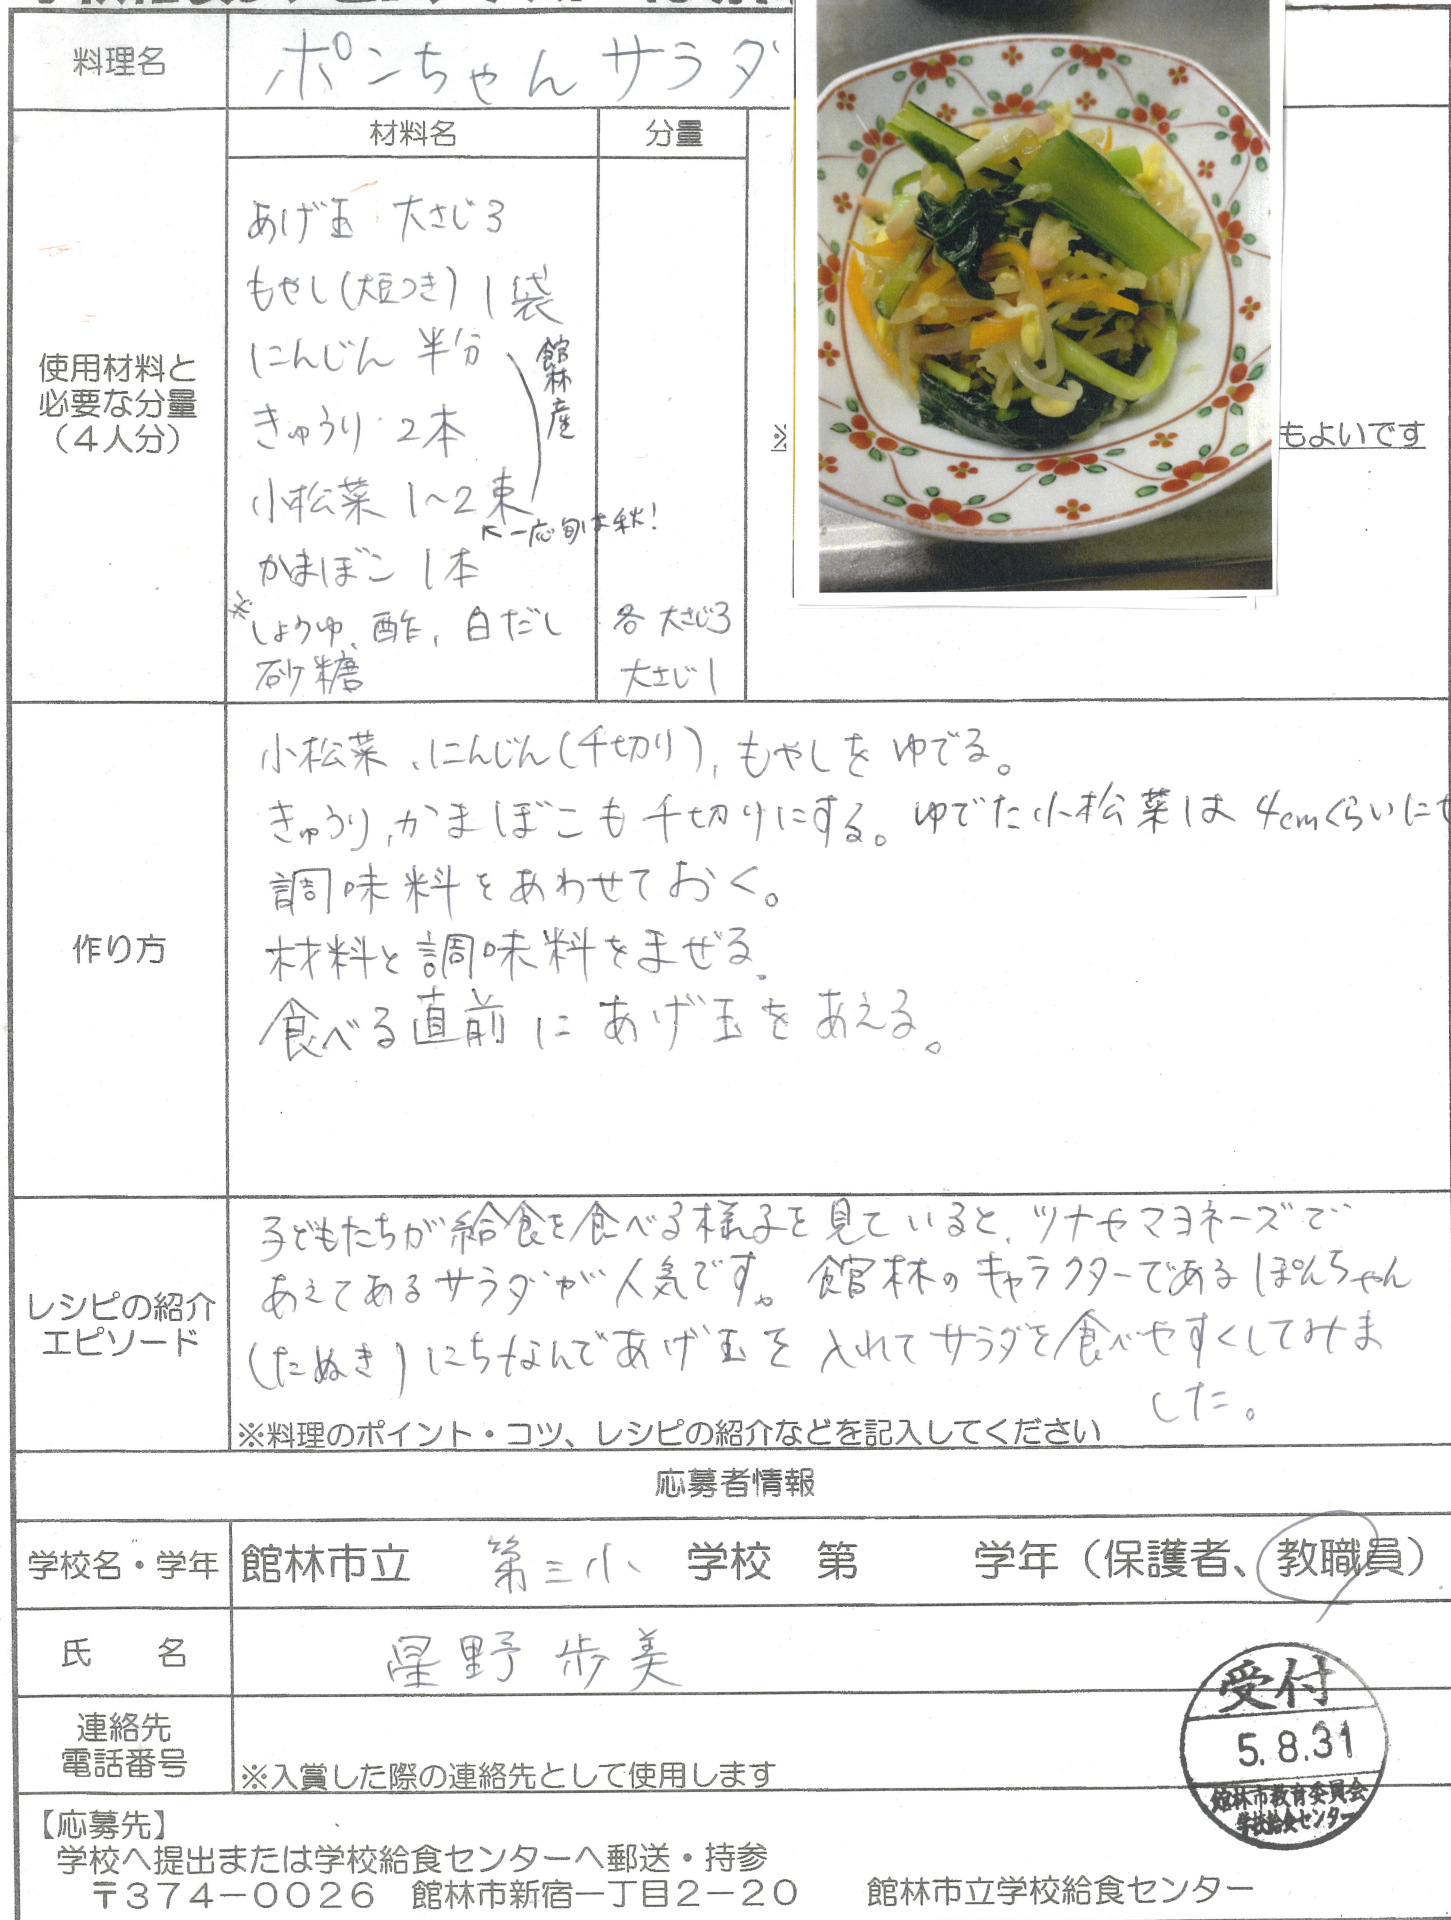 料理名
ポンちゃんサラダ
材料名
分量
使用材料と
必要な分量
(4人分)
あげ玉 大さじ3
もやし(大豆つき) 1袋
にんじん 半分
きゅうり 2本
小松菜 1~2束
館林産
←一応旬は秋!
かまぼこ 1本
しょうゆ、酢、白だし 各大さじ3
砂糖 大さじ1
※
もよいです
作り方
小松菜、にんじん(千切り)、もやしをゆでる。
きゅうり、かまぼこも千切りにする。ゆでた小松菜は4cmくらいに
調味料をあわせておく。
材料と調味料をまぜる。
食べる直前にあげ玉をあえる。
レシピの紹介
エピソード
子どもたちが給食を食べる様子を見ていると、ツナやマヨネーズで
あえてあるサラダが人気です。館林のキャラクターであるぽんちゃん
(たぬき)にちなんであげ玉を入れてサラダを食べやすくしてみま
した。
※料理のポイント・コツ、レシピの紹介などを記入してください
応募者情報
学校名・学年
館林市立 第三小 学校 第 学年(保護者、教職員)
氏 名
星野 歩美
連絡先
電話番号
※入賞した際の連絡先として使用します
受付
5.8.31
館林市教育委員会
学校給食センター
【応募先】
学校へ提出または学校給食センターへ郵送・持参
〒374-0026 館林市新宿一丁目2-20 館林市立学校給食センター